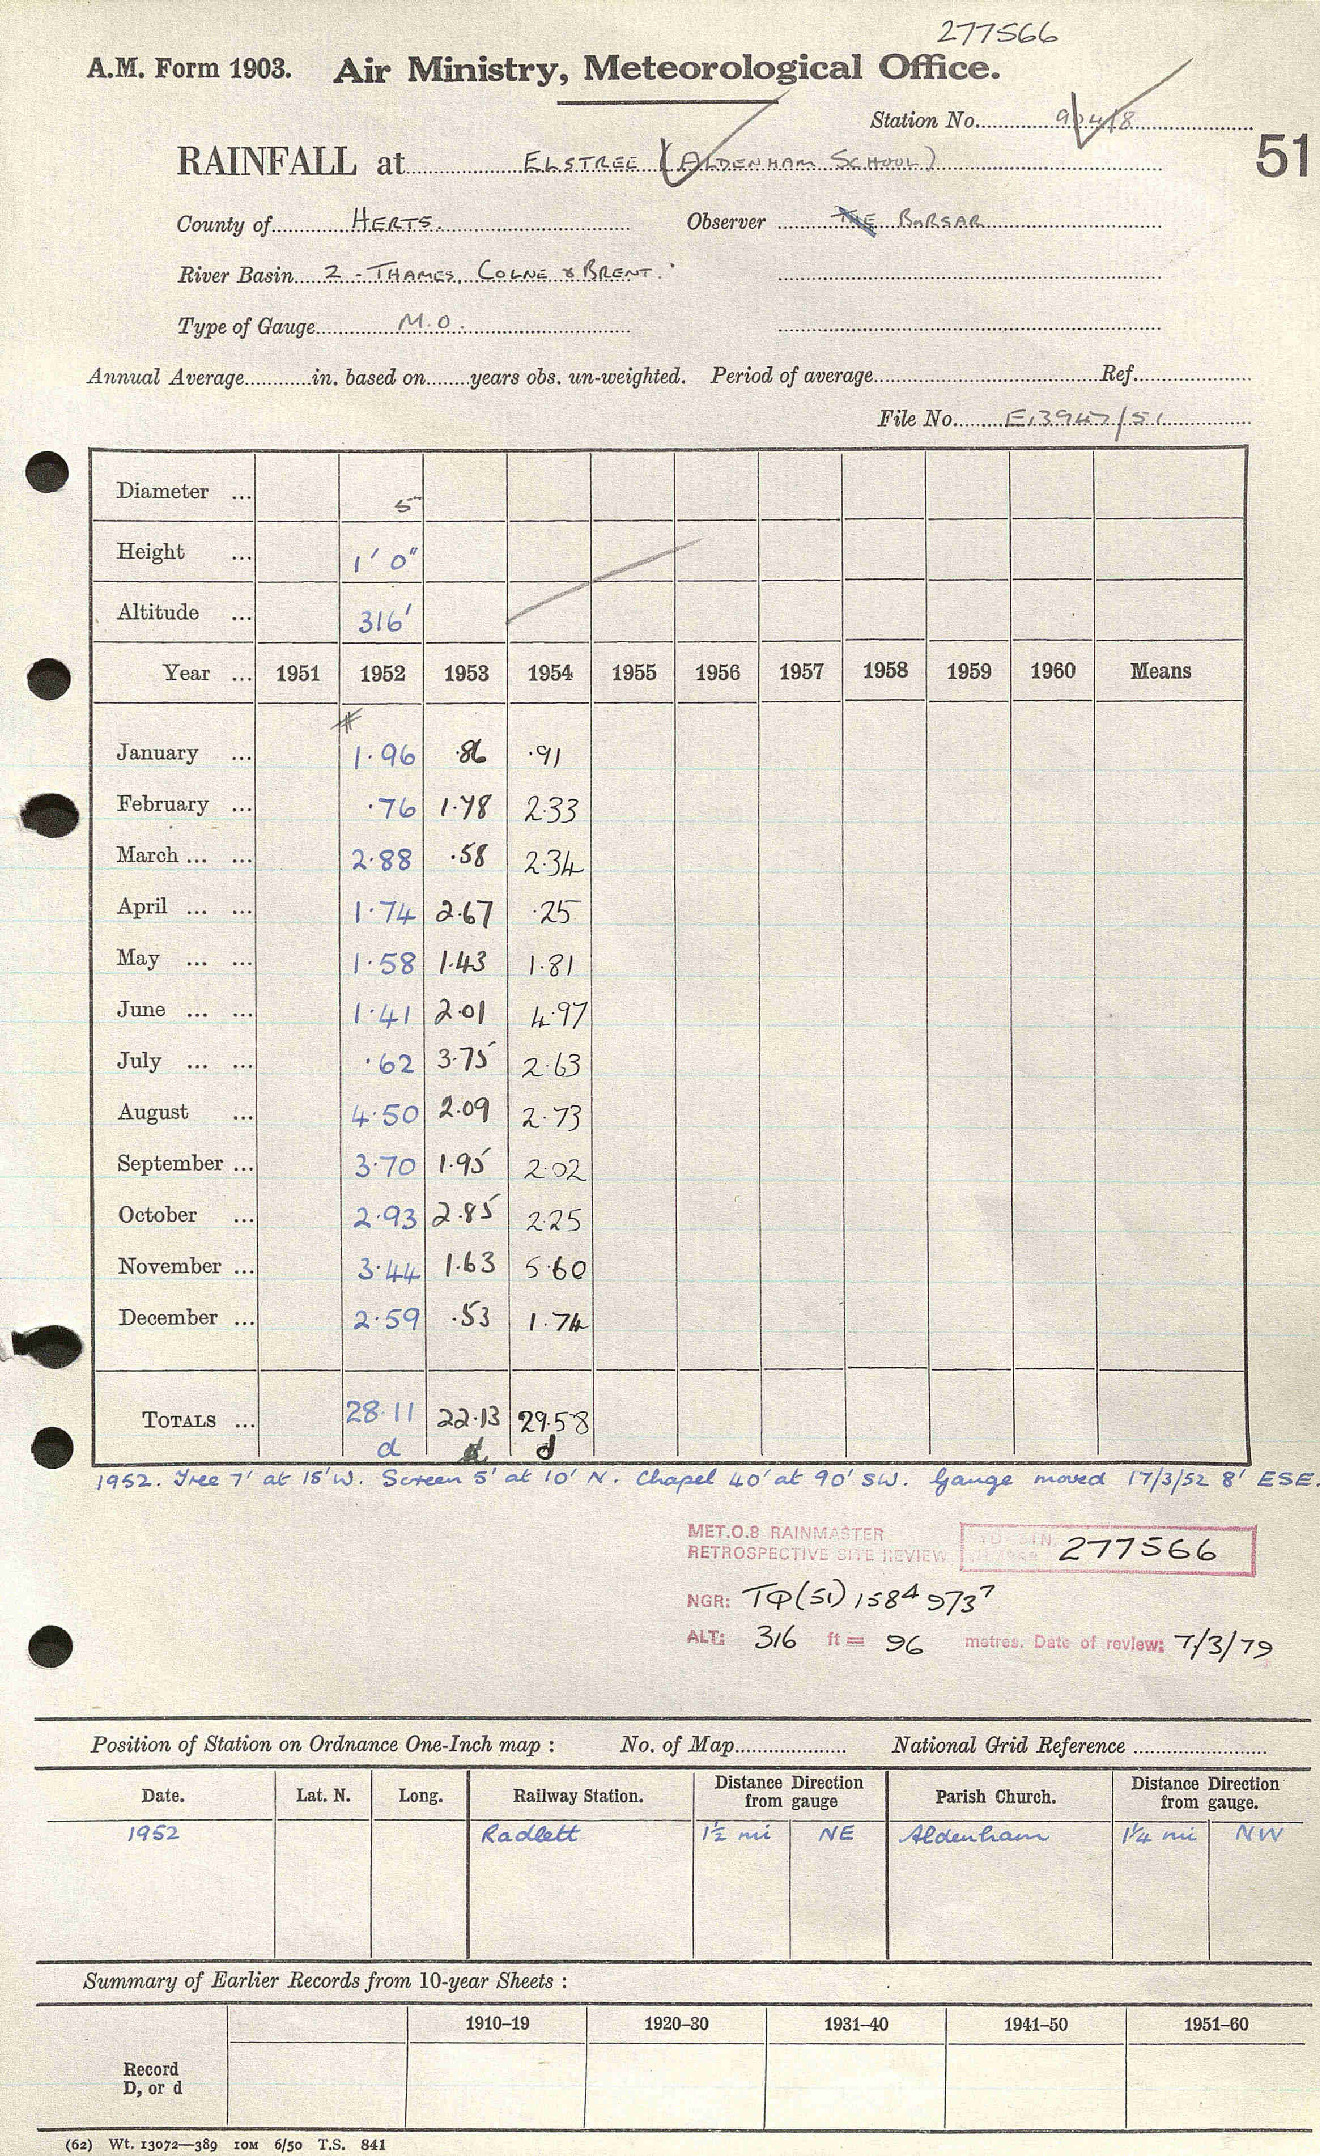 277566
A.M. Form 1903. Air Ministry, Meteorological Office.
Station No.
RAINFALL at ELSTREE (ALDENHAM SCHOOL)
51
County of HERTS. Observer THE BURSAR
River Basin 2 - THAMES, COLNE & BRENT.
Type of Gauge M.O.
Annual Average in. based on years obs. un-weighted. Period of average Ref.
File No. E13947/51
Diameter ... 5
Height ... 1' 0"
Altitude ... 316'
Year ... 1951 1952 1953 1954 1955 1956 1957 1958 1959 1960 Means
January ... 1.96 .86 .91
February ... .76 1.78 2.33
March ... ... 2.88 .58 2.34
April ... ... 1.74 2.67 .25
May ... ... 1.58 1.43 1.81
June ... ... 1.41 2.01 4.97
July ... ... .62 3.75 2.63
August ... 4.50 2.09 2.73
September ... 3.70 1.95 2.02
October ... 2.93 2.85 2.25
November ... 3.44 1.63 5.60
December ... 2.59 .53 1.74
TOTALS ... 28.11 22.13 29.58
d d d
1952. Tree 7' at 15' W. Screen 5' at 10' N. Chapel 40' at 90' SW. Gauge moved 17/3/52 8' ESE.
MET.O.8 RAINMASTER
RETROSPECTIVE SITE REVIEW 277566
NGR: TQ(51)1584 9737
ALT: 316 ft = 96 metres. Date of review: 7/3/79
Position of Station on Ordnance One-Inch map : No. of Map National Grid Reference
Date. Lat. N. Long. Railway Station. Distance Direction from gauge Parish Church. Distance Direction from gauge.
1952 Radlett 1½ mi NE Aldenham 1¼ mi NW
Summary of Earlier Records from 10-year Sheets :
1910-19 1920-30 1931-40 1941-50 1951-60
Record
D, or d
(62) Wt. 13072—389 10M 6/50 T.S. 841